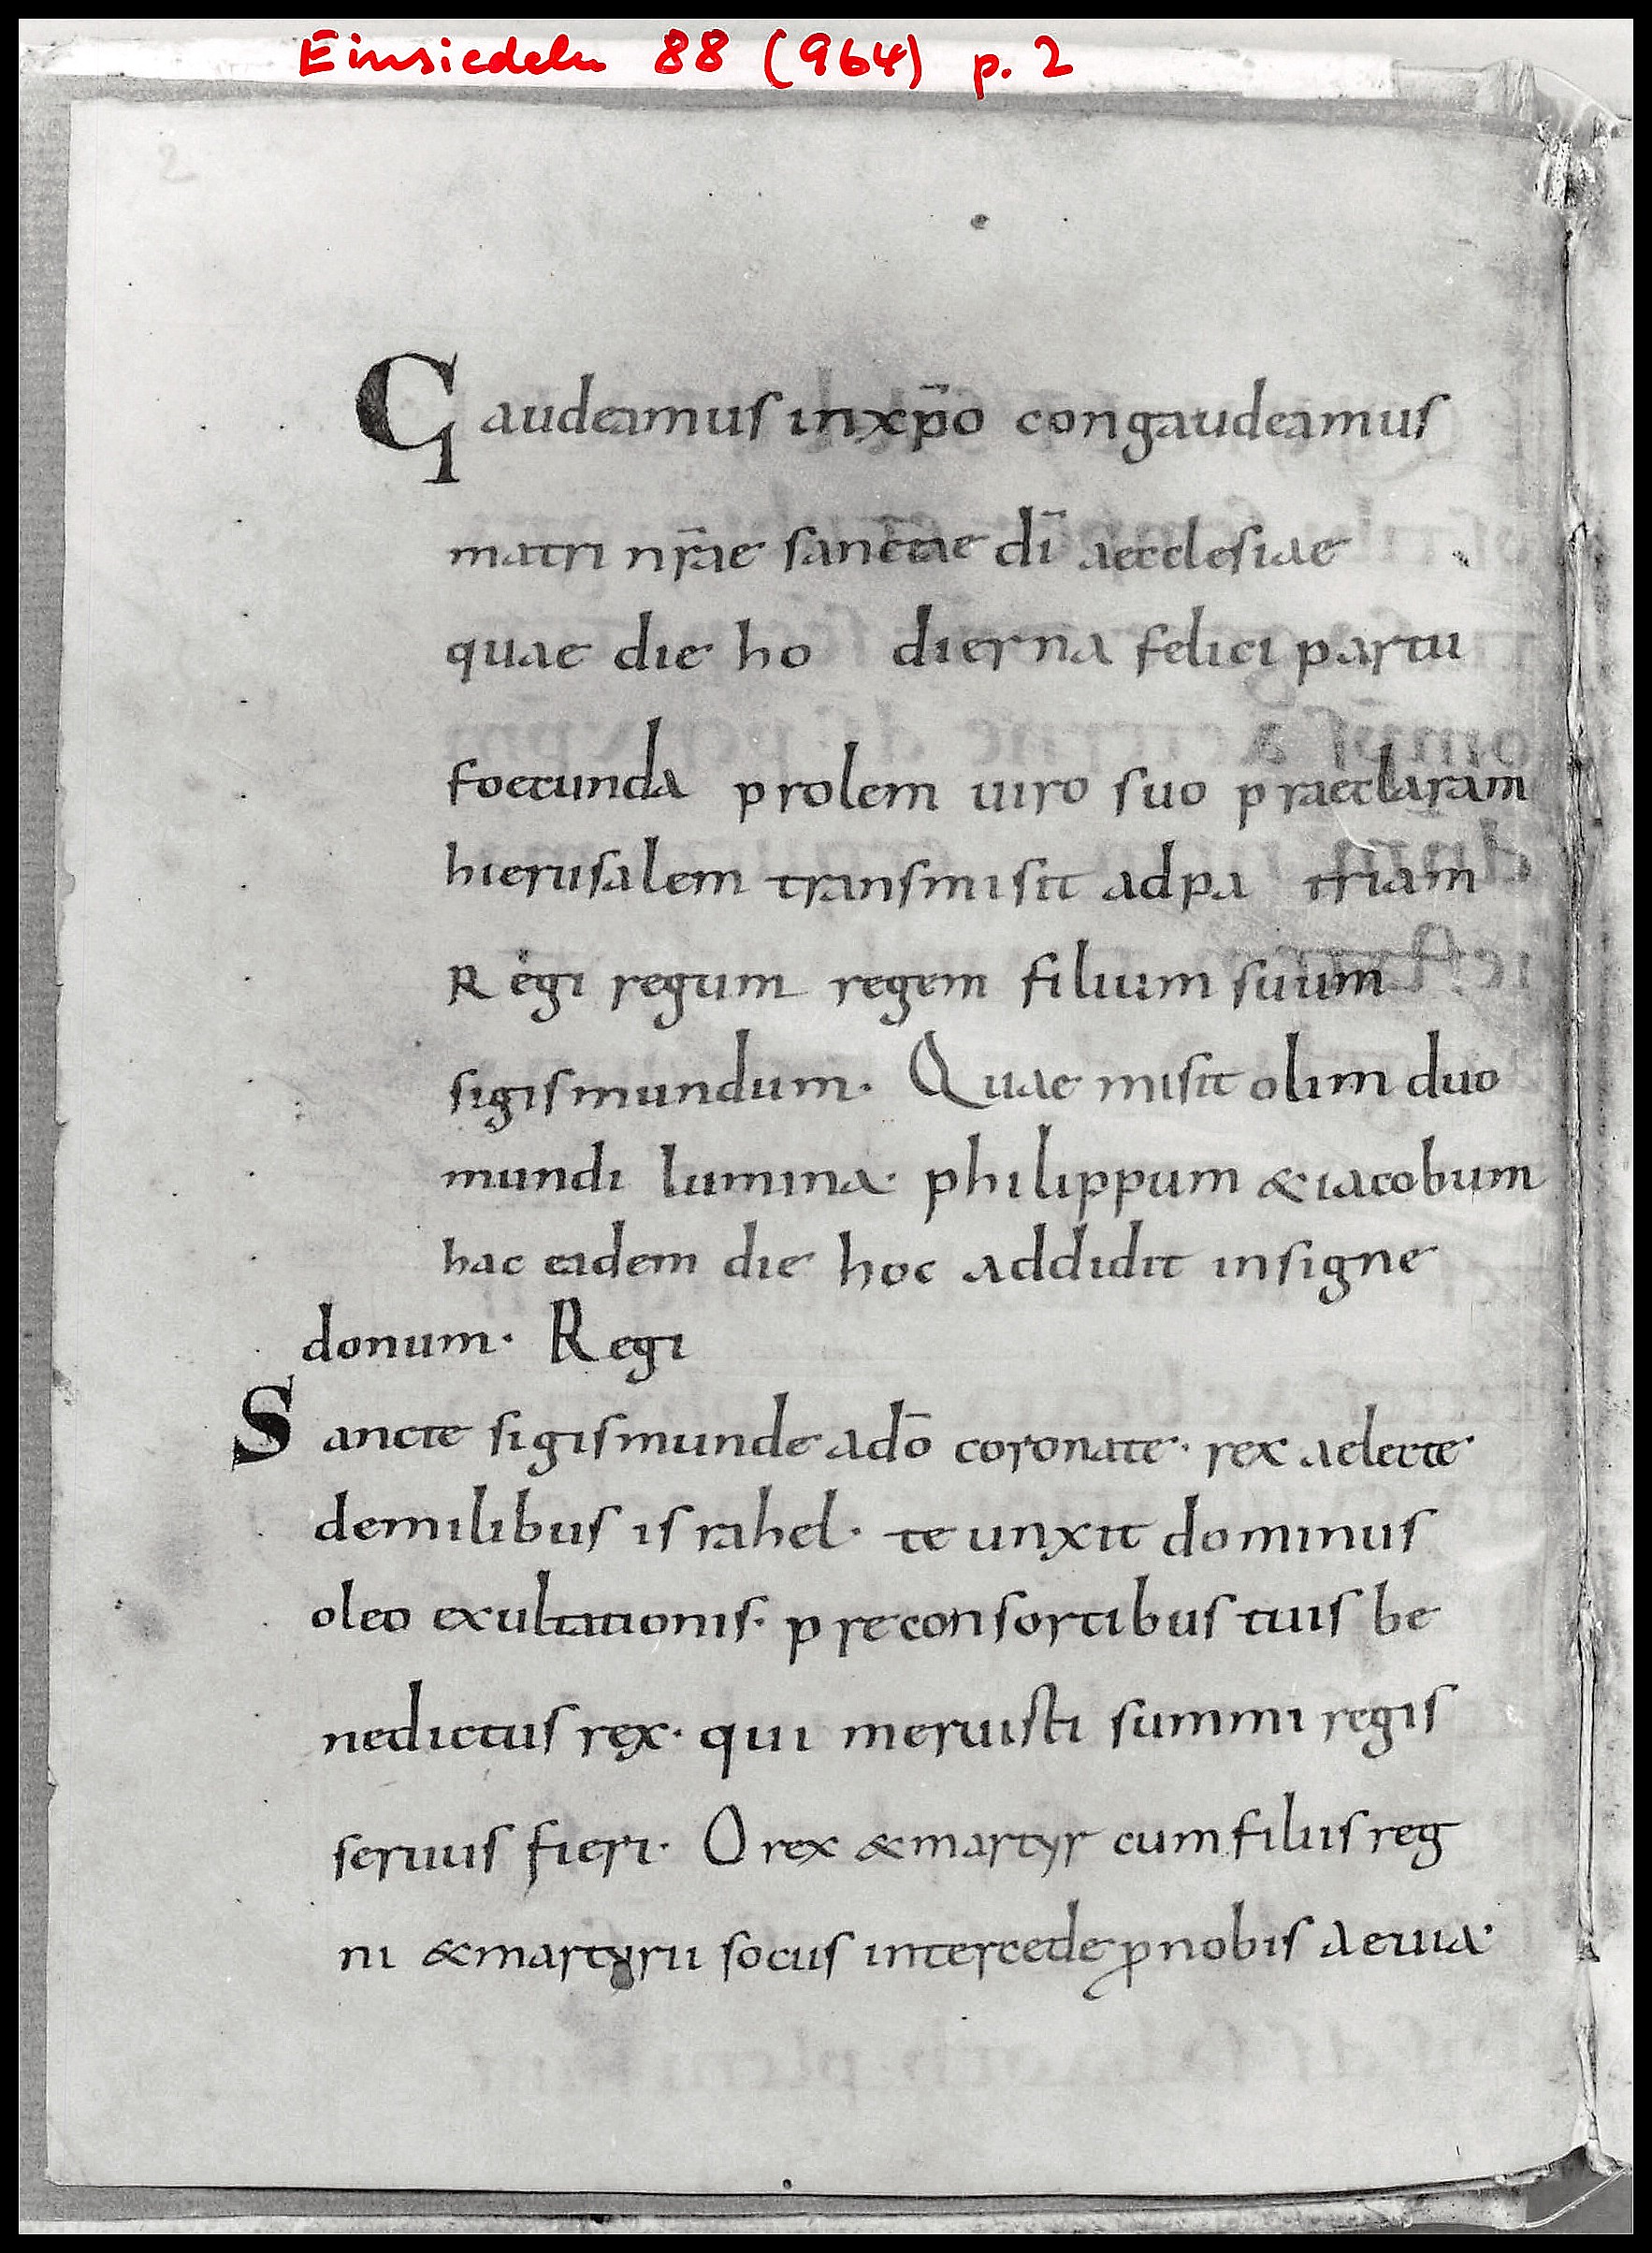 Einsiedeln 88 (964) p. 2
2
Gaudeamus inxp̄o congaudeamus
matri nr̄ae sanctae dī aecclesiae
quae die ho dierna felici partu
foecunda prolem uiro suo praeclaram
hierusalem transmisit adpa triam
Regi regum regem filium suum
sigismundum. Quae misit olim duo
mundi lumina. philippum &iacobum
hac eadem die hoc addidit insigne
donum. Regi
Sancte sigismunde adō coronate. rex aelecte.
demilibus israhel. te unxit dominus
oleo exultationis. preconsortibus tuis be
nedictus rex. qui meruisti summi regis
seruus fieri. O rex &martyr cumfiliis reg
ni &martyrii sociis intercede ꝓnobis aeuia.